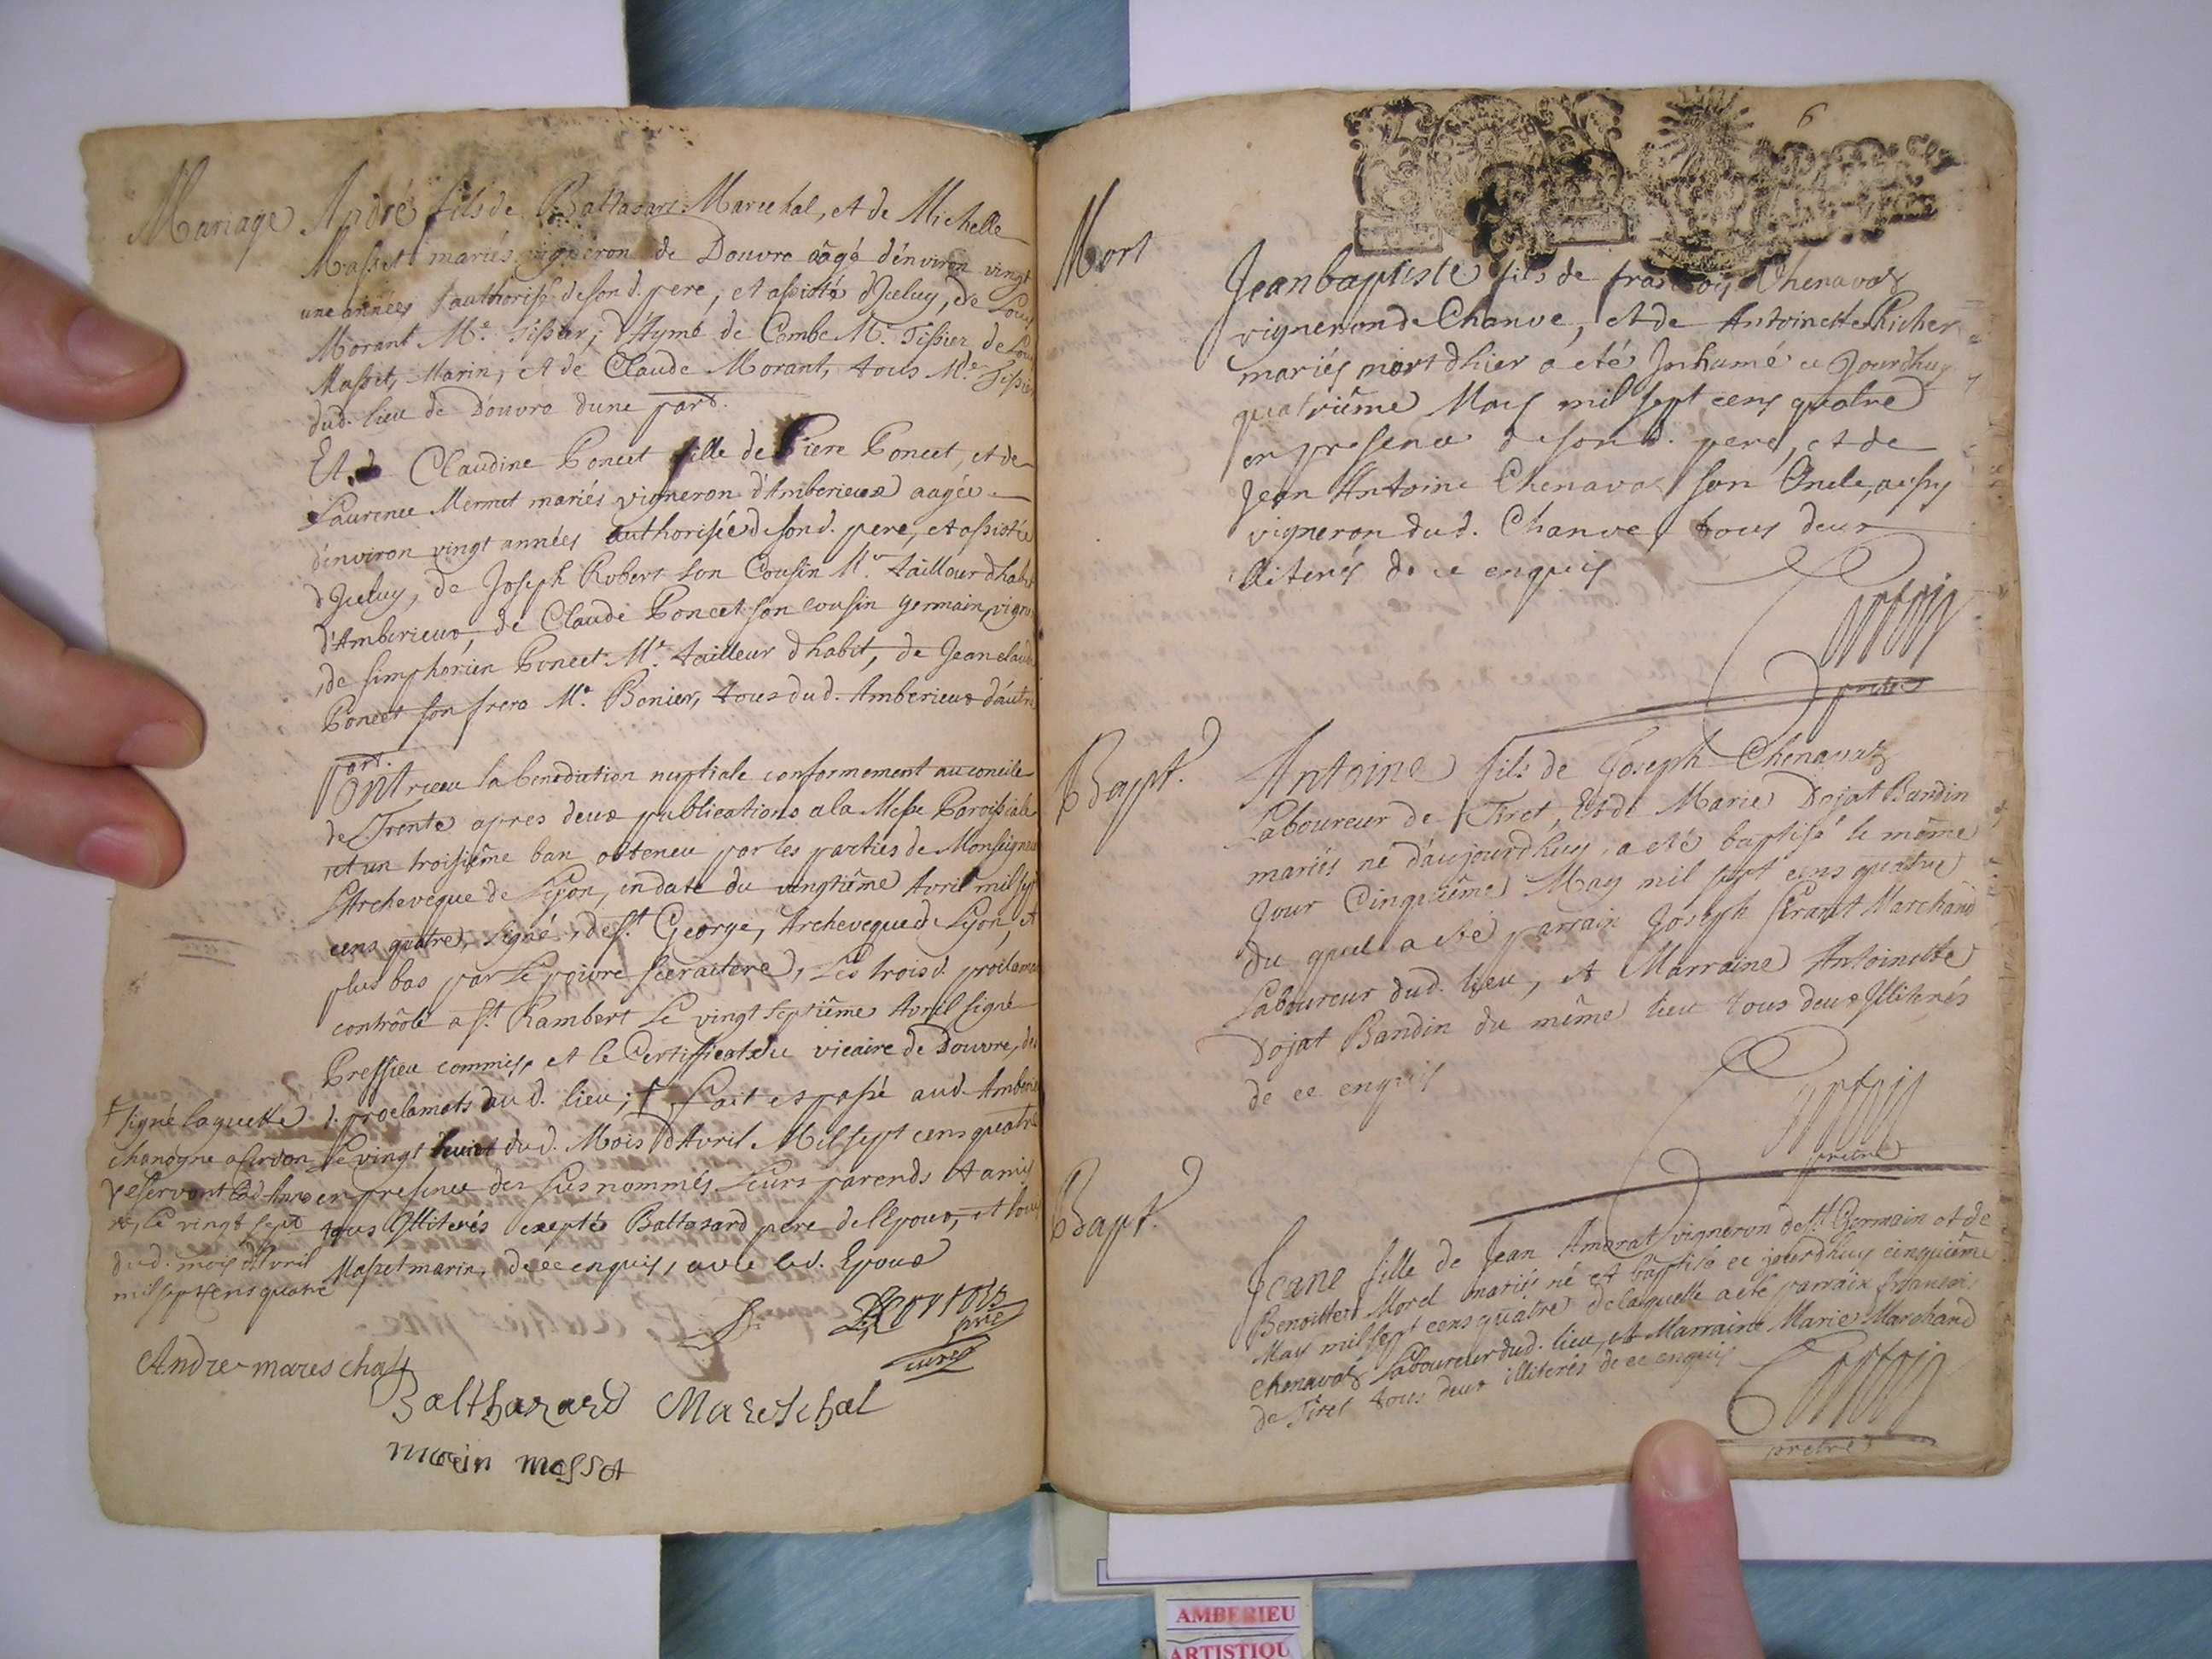 Mariage
André fils de Baltasart Marechal, et de Michelle
Masset mariés vigneron de Douvre aâgé d'environ vingt
une années authorisé de son d. pere, et assisté d'Iceluy, de Louis
Morant Me. Tissier, d'Aymé de Combe Me. Tissier de Louis
Masset, Marin, et de Claude Morant, tous Me. Tissie
dud. lieu de Douvre dune part.
Et Claudine Poncet fille de Piere Poncet, et de
Laurence Mermet mariés vigneron d'Amberieux aagée
d'environ vingt années authorisée de son d. pere, et assistée
d'Iceluy, de Joseph Robert son Cousin Me. tailleur dhabit
d'Amberieux, de Claude Poncet son cousin germain, vigne
de simphorien Poncet Me. tailleur dhabit, de Jean claude
Poncet son frere Me. Bonier, tous dud. Amberieux d'autre
part.
Ont receu la benediction nuptiale conformement au concile
de Trente apres deux publications a la Messe Paroissiale
et un troisiême ban obteneu par les parties de Monseigneur
L'Archeveque de Lyon, en date du vingtiême Avril mil sept
cens quatre, signé, de St. George, Archeveque de Lyon, et
plus bas par Le poivre secraitere, Les trois d. proclama
contrôolé a St. Rambert Le vingt septiême Avril signé
Pressieu commis, et le Certifficat du vicaire de Douvre, des
d. proclamats du d. lieu; † fait et passé aud. Amberie
le vingt huict du d. Mois d'Avril Mil sept cens quatre
en presence des susnommés Leurs parends et amis
tous Illiterés exeptés Baltasard pere de l'Epoux, et Louis
Masset marin, de ce enquis, avec led. Epoux
† signé laquette
chanoyne a Cerdon
du d. mois d'Avril
mil sept cens quatre
pre
curé
Andre mareschal
Balthazard Mareschal
marin masset
6
Mort
Jean baptiste fils de francois Chenavas
vigneron de Chanve, et de Antoinette Richer
mariés mort dhier a eté Inhumé ce Jourdhuy
quatriême May mil sept cens quatre
en presence de son d. pere, et de
Jean Antoine Chenavas son Oncle, aussy
vigneron du d. Chanve tous deux
illiterés de ce enquis
pretre
Bapt.
Antoine fils de Joseph Chenavas
Laboureur de Tiret, Et de Marie Dojat Bandin
mariés né d'aujourdhuy a eté baptisé le même
Jour Cinquiême May mil sept cens quatre
du quel a eté parrain Joseph Marchand
Laboureur du d. lieu, et Marraine Antoinette
Dojat Bandin du même lieu tous deux Illiterés
de ce enquis
pretre
Bapt.
Jeane fille de Jean Amarat vigneron de St. Germain et de
Benoitte Morel mariés né et baptisé ce jourdhuy cinquiême
May mil sept cens quatre de laquelle a eté parrain francois
Chenavas Laboureur dud. lieu, et Marraine Marie Marchand
de Tiret tous deux illiterés de ce enquis
pretre
AMBERIEU
ARTISTIQU